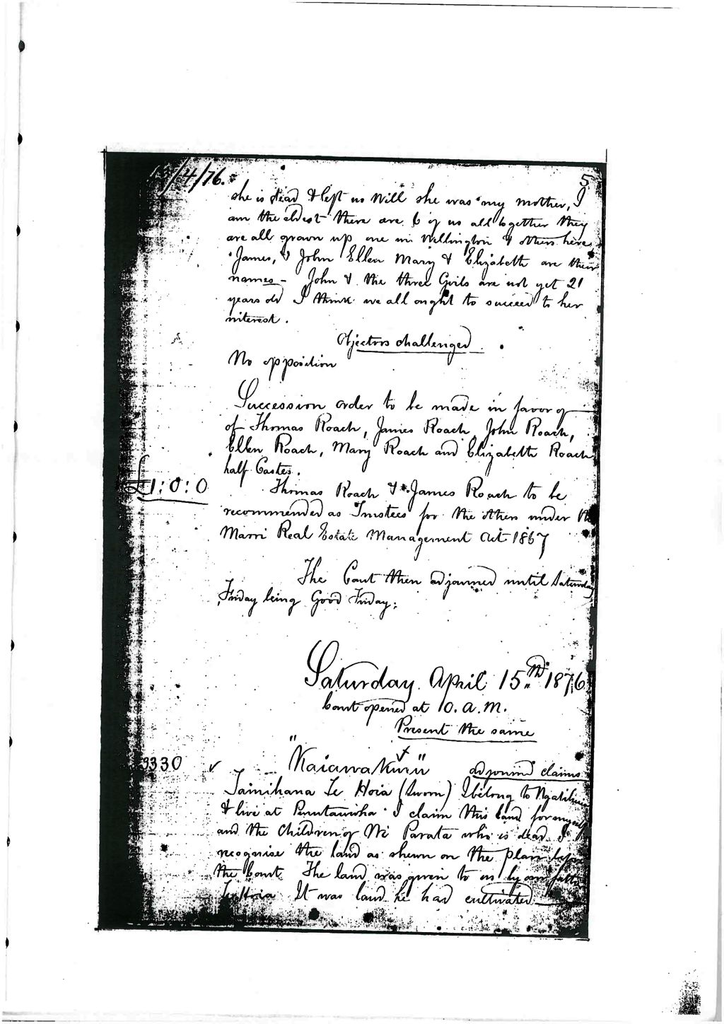 13/4/76. 5
she is dead & left no Will she was my mother, I
am the eldest there are 6 of us all together they
are all grown up one in Wellington & others here
James, & John Ellen Mary & Elizabeth are their
names - John & the three Girls are not yet 21
years old I think we all ought to succeed to her
interest.
Objectors challenged.
No opposition
Succession order to be made in favor of
of Thomas Roach, James Roach, John Roach,
Ellen Roach, Mary Roach and Elizabeth Roach
half Castes.
£1:0:0
Thomas Roach & James Roach to be
recommended as Trustees for the others under the
Maori Real Estate Management Act 1867
The Court then adjourned until Saturday
Friday being Good Friday;
Saturday April 15th 1876
Court opened at 10. a.m.
Present the same
3330 "Kaiawakuru" adjourned claims
Tamihana Te Hoia (sworn) I belong to
& live at I claim this land for myself
and the Children of Wi Parata who is dead I
recognise the land as shewn on the plan before
the Court The land was given to us by our father
Te Hoia It was land he had cultivated